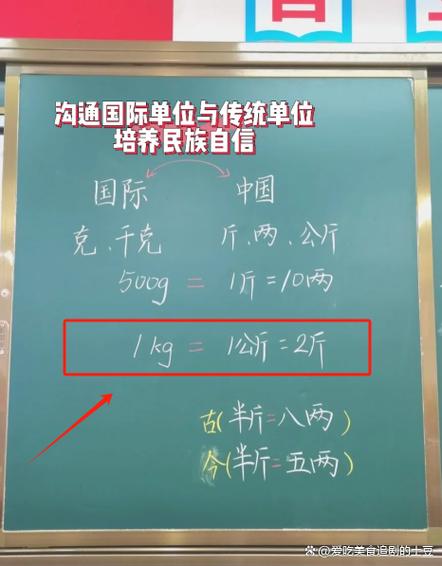 沟通国际单位与传统单位
培养民族自信
国际 中国
克、千克 斤、两、公斤
500g = 1斤=10两
1kg = 1公斤=2斤
古(半斤=八两)
今(半斤=五两)
爱吃美食追剧的土豆